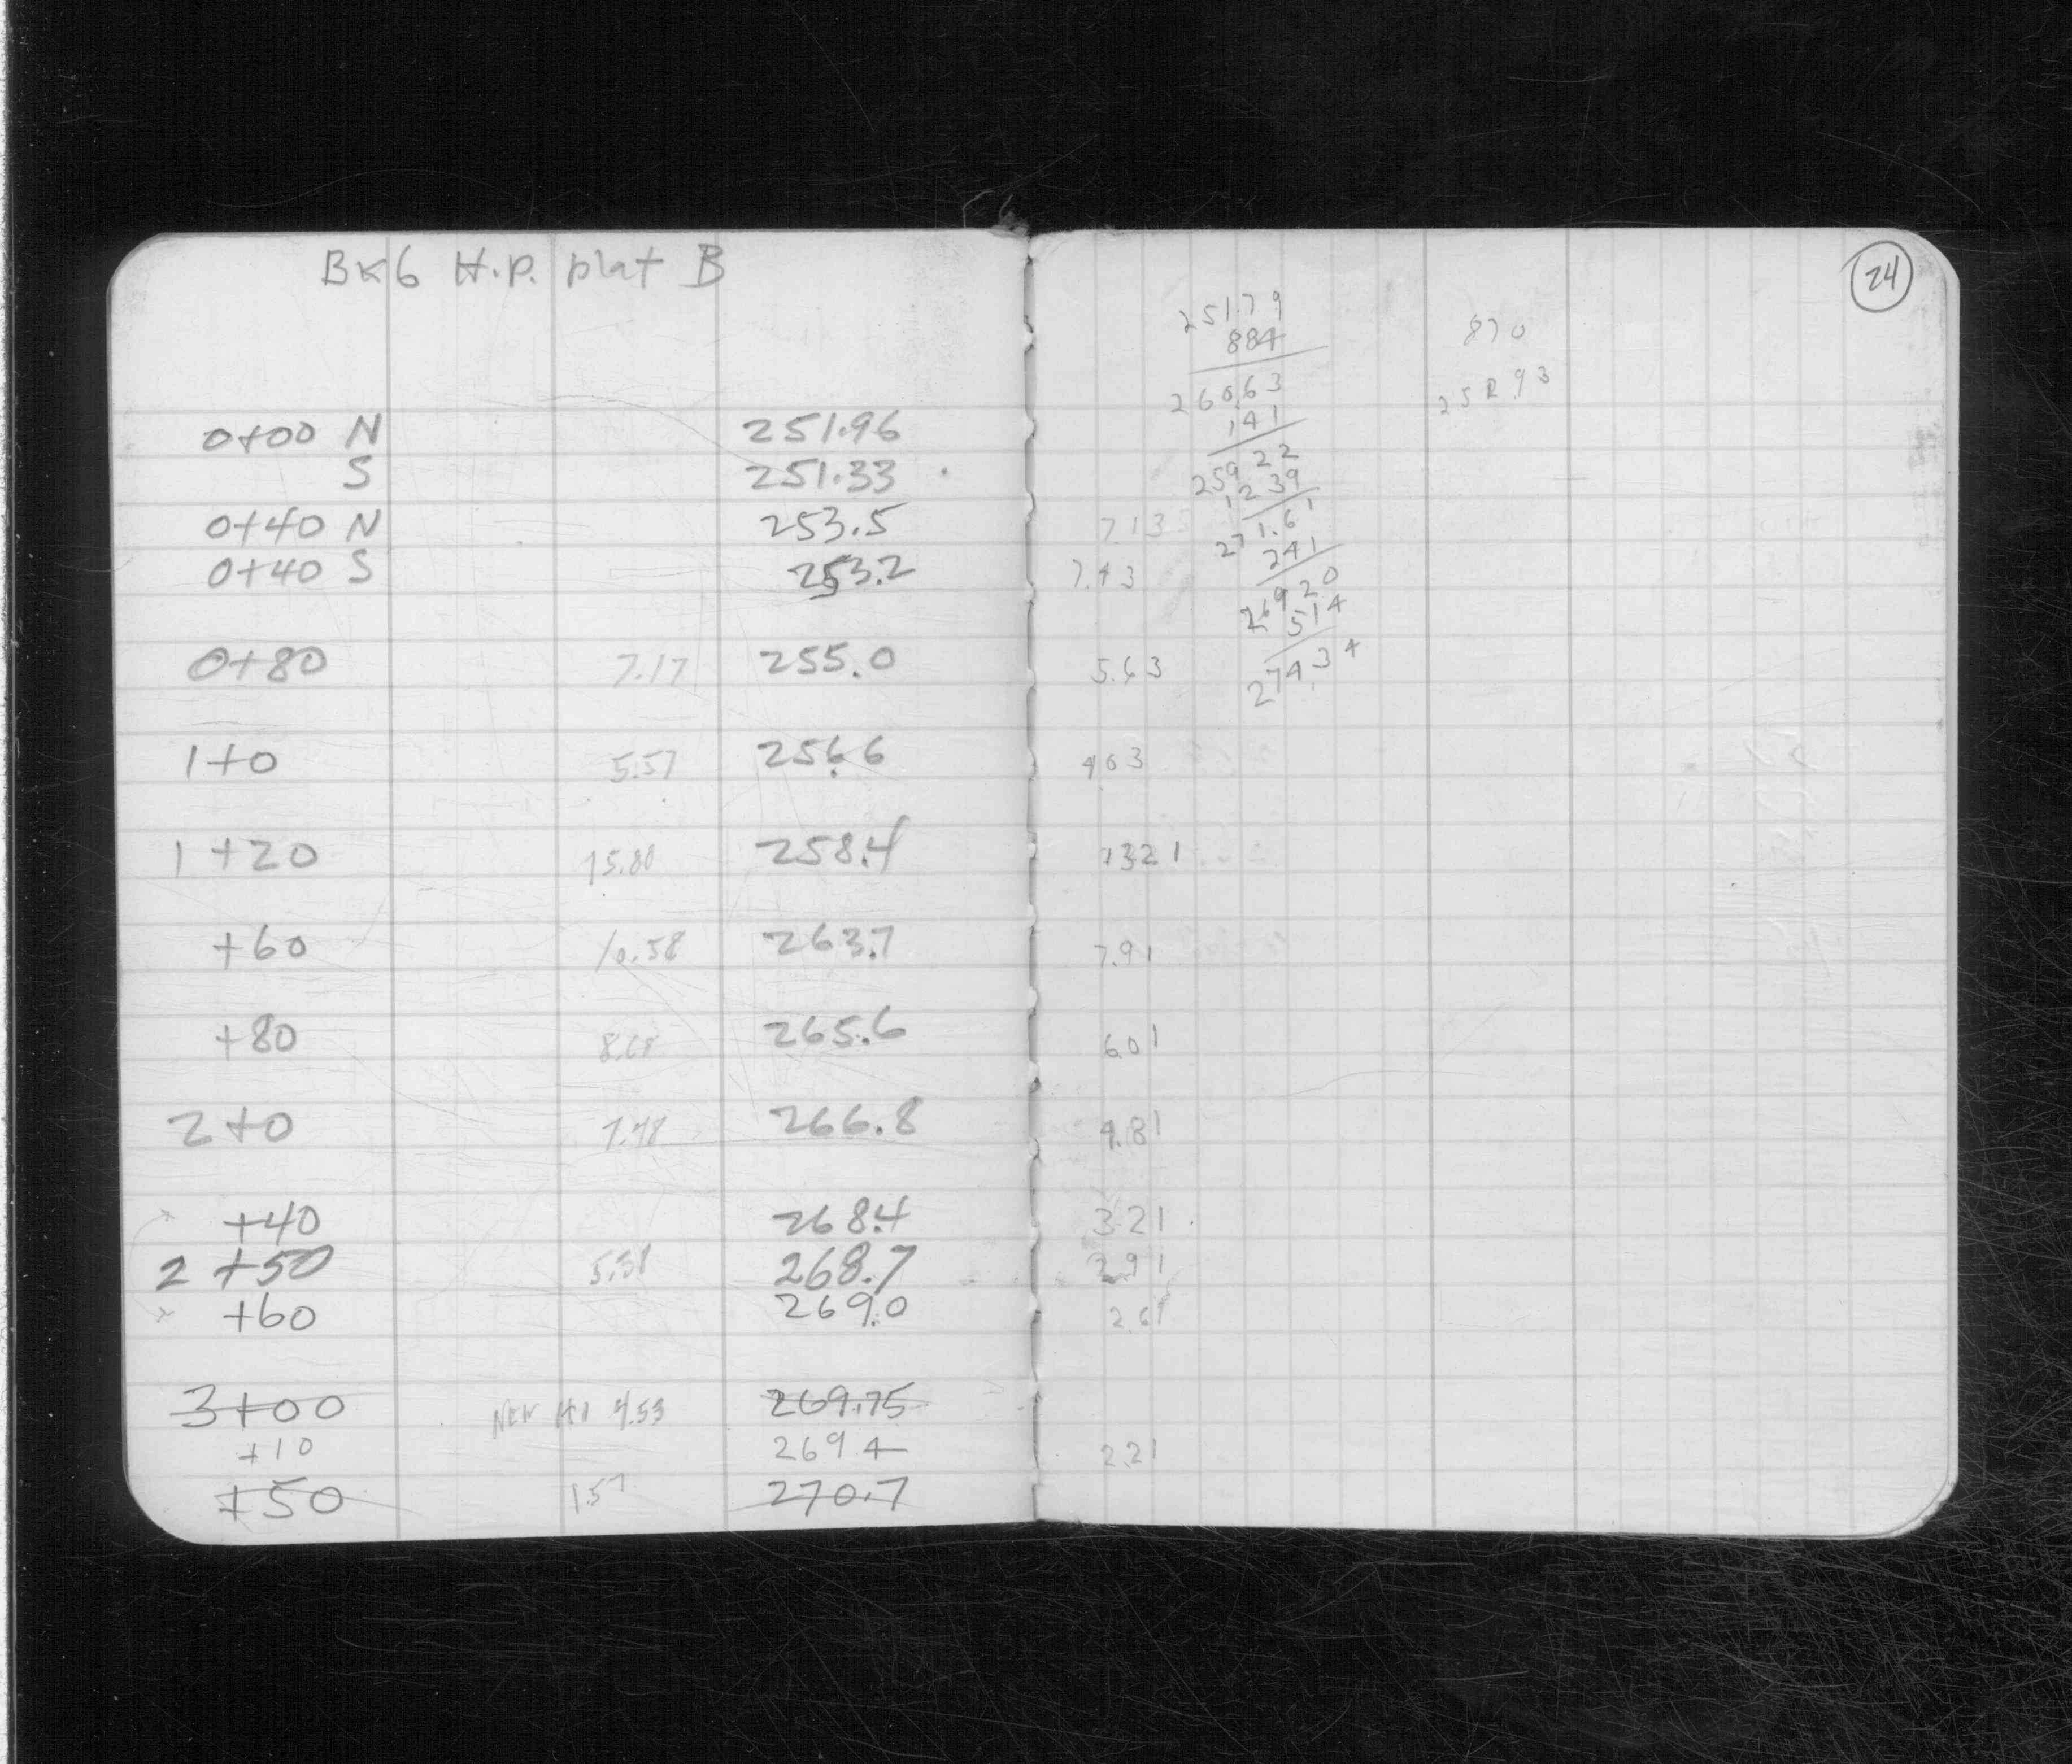 Bk6 H.P. plat B
0+00 N 251.96
S 251.33
0+40 N 253.5
0+40 S 253.2
0+80 7.17 255.0
1+0 5.57 256.6
1+20 15.88 258.4
+60 10.58 263.7
+80 8.68 265.6
2+0 7.48 266.8
+40 268.4
2+50 5.58 268.7
+60 269.0
3+00 New HI 4.53 269.75
+10 269.4
+50 1.57 270.7
24
251.79
884
260.63
141
259.22
1239
271.61
241
269.20
514
274.34
870
252.93
7.13
7.43
5.63
4.03
13.21
7.91
6.01
4.81
3.21
2.91
2.61
2.21